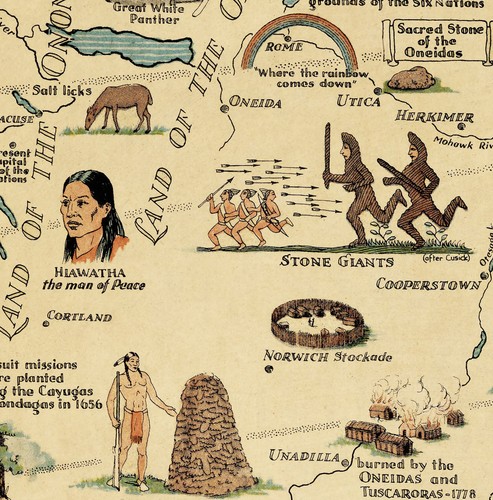 Great White
Panther
grounds of the Six Nations
ROME
Sacred Stone
of the
Oneidas
"Where the rainbow
comes down"
Salt licks
ONEIDA
UTICA
HERKIMER
Mohawk Riv
ACUSE
resent
apital
of the
ations
LAND OF THE ONON
LAND OF THE O
HIAWATHA
the man of Peace
STONE GIANTS
(after Cusick)
COOPERSTOWN
CORTLAND
NORWICH Stockade
suit missions
re planted
g the Cayugas
ondagas in 1656
UNADILLA
burned by the
ONEIDAS and
TUSCARORAS-1778